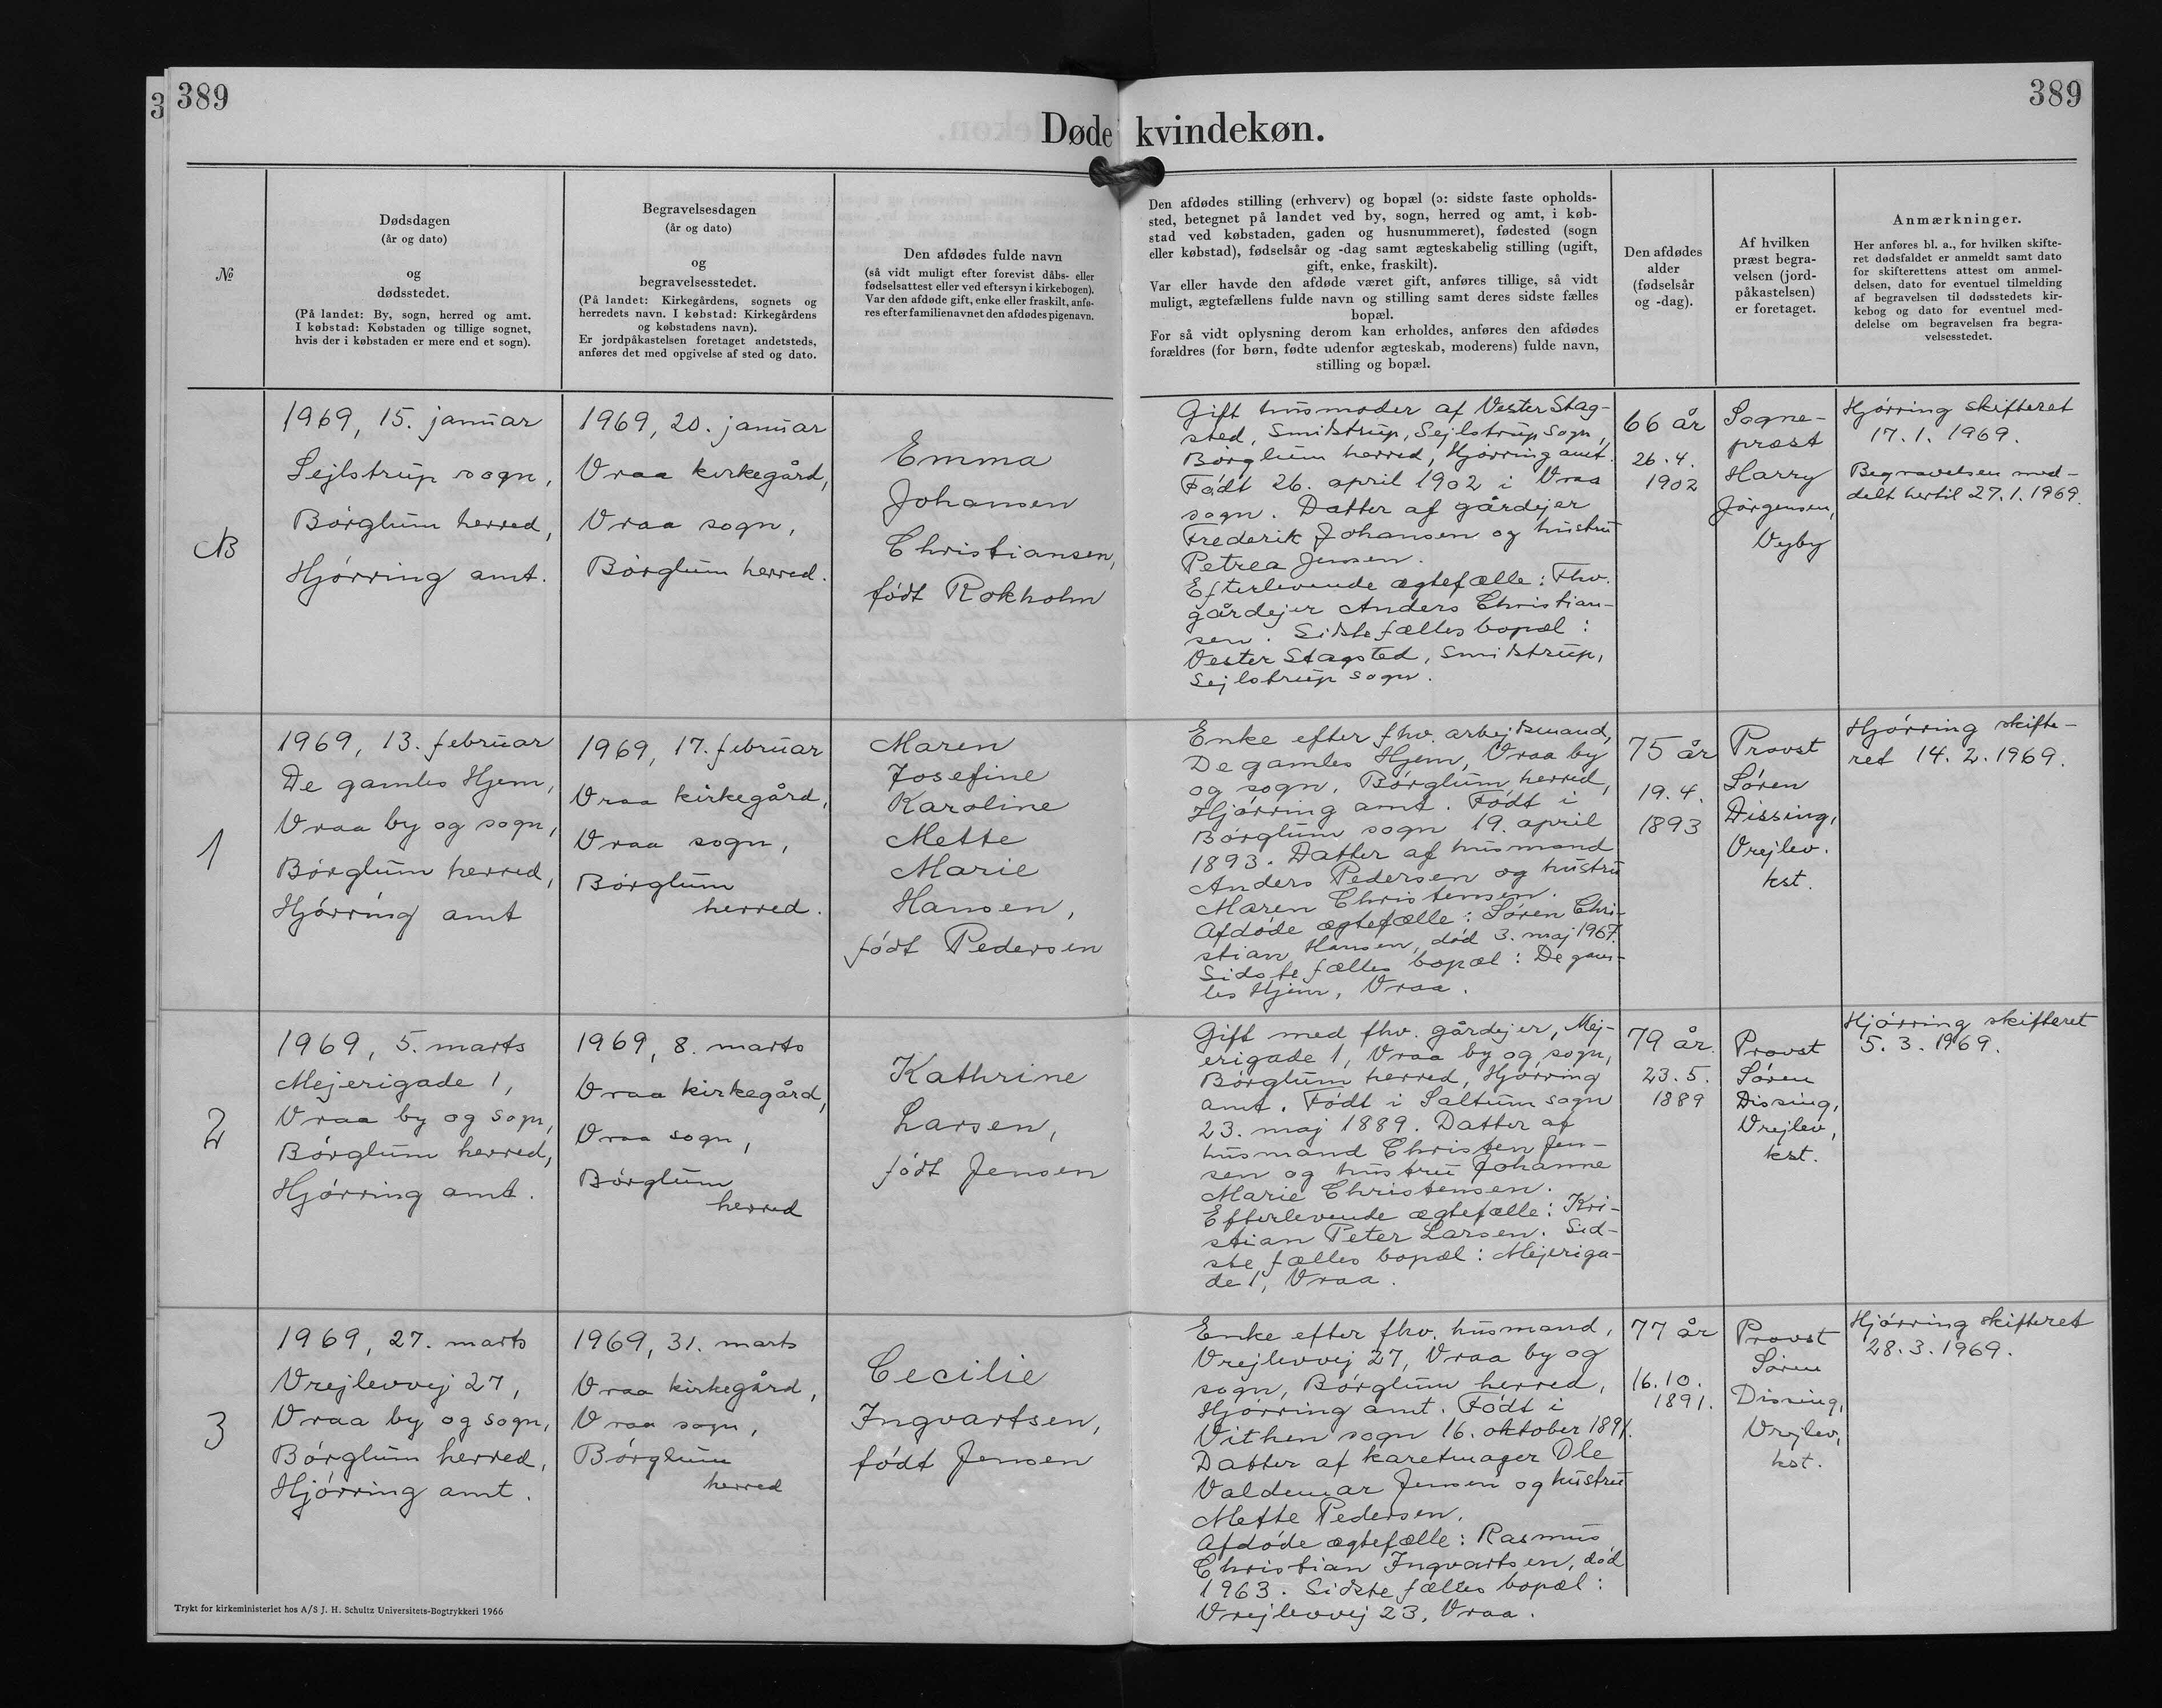 389
389
3
Døde kvindekøn.
№
Dødsdagen
(år og dato)
og
dødsstedet.
(På landet: By, sogn, herred og amt.
I købstad: Købstaden og tillige sognet,
hvis der i købstaden er mere end et sogn).
Begravelsesdagen
(år og dato)
og
begravelsesstedet.
(På landet: Kirkegårdens, sognets og
herredets navn. I købstad: Kirkegårdens
og købstadens navn).
Er jordpåkastelsen foretaget andetsteds,
anføres det med opgivelse af sted og dato.
Den afdødes fulde navn
(så vidt muligt efter forevist dåbs- eller
fødselsattest eller ved eftersyn i kirkebogen).
Var den afdøde gift, enke eller fraskilt, anfø-
res efter familienavnet den afdødes pigenavn.
Den afdødes stilling (erhverv) og bopæl (ɔ: sidste faste opholds-
sted, betegnet på landet ved by, sogn, herred og amt, i køb-
stad ved købstaden, gaden og husnummeret), fødested (sogn
eller købstad), fødselsår og -dag samt ægteskabelig stilling (ugift,
gift, enke, fraskilt).
Var eller havde den afdøde været gift, anføres tillige, så vidt
muligt, ægtefællens fulde navn og stilling samt deres sidste fælles
bopæl.
For så vidt oplysning derom kan erholdes, anføres den afdødes
forældres (for børn, fødte udenfor ægteskab, moderens) fulde navn,
stilling og bopæl.
Den afdødes
alder
(fødselsår
og -dag).
Af hvilken
præst begra-
velsen (jord-
påkastelsen)
er foretaget.
Anmærkninger.
Her anføres bl. a., for hvilken skifte-
ret dødsfaldet er anmeldt samt dato
for skifterettens attest om anmel-
delsen, dato for eventuel tilmelding
af begravelsen til dødsstedets kir-
kebog og dato for eventuel med-
delelse om begravelsen fra begra-
velsesstedet.
NB
1969, 15. januar
Sejlstrup sogn,
Børglum herred,
Hjørring amt.
1969, 20. januar
Vraa kirkegård,
Vraa sogn,
Børglum herred.
Emma
Johansen
Christiansen,
født Rokholm
Gift husmoder af Vester Stag-
sted, Smidstrup, Sejlstrup sogn,
Børglum herred, Hjørring amt.
Født 26. april 1902 i Vraa
sogn. Datter af gårdejer
Frederik Johansen og hustru
Petrea Jensen.
Efterlevende ægtefælle: Fhv.
gårdejer Anders Christian-
sen. Sidste fælles bopæl:
Vester Stagsted, Smidstrup,
Sejlstrup sogn.
66 år
26.4.
1902
Sogne-
præst
Harry
Jørgensen,
Vejby
Hjørring skifteret
17.1.1969.
Begravelsen med-
delt hertil 27.1.1969.
1
1969, 13. februar
De gamles Hjem,
Vraa by og sogn,
Børglum herred,
Hjørring amt
1969, 17. februar
Vraa kirkegård,
Vraa sogn,
Børglum
herred.
Maren
Josefine
Karoline
Mette
Marie
Hansen,
født Pedersen
Enke efter fhv. arbejdsmand,
De gamles Hjem, Vraa by
og sogn, Børglum herred,
Hjørring amt. Født i
Børglum sogn 19. april
1893. Datter af husmand
Anders Pedersen og hustru
Maren Christensen.
Afdøde ægtefælle: Søren Chri-
stian Hansen, død 3. maj 1967.
Sidste fælles bopæl: De gam-
les Hjem, Vraa.
75 år
19.4.
1893
Provst
Søren
Dissing,
Vrejlev.
kst.
Hjørring skifte-
ret 14.2.1969.
2
1969, 5. marts
Mejerigade 1,
Vraa by og sogn,
Børglum herred,
Hjørring amt.
1969, 8. marts
Vraa kirkegård,
Vraa sogn,
Børglum
herred
Kathrine
Larsen,
født Jensen
Gift med fhv. gårdejer, Mej-
erigade 1, Vraa by og sogn,
Børglum herred, Hjørring
amt. Født i Saltum sogn
23. maj 1889. Datter af
husmand Christen Jen-
sen og hustru Johanne
Marie Christensen.
Efterlevende ægtefælle: Kri-
stian Peter Larsen. Sid-
ste fælles bopæl: Mejeriga-
de 1, Vraa.
79 år.
23.5.
1889
Provst
Søren
Dissing,
Vrejlev,
kst.
Hjørring skifteret
5.3.1969.
3
1969, 27. marts
Vrejlevvej 27,
Vraa by og sogn,
Børglum herred,
Hjørring amt.
1969, 31. marts
Vraa kirkegård,
Vraa sogn,
Børglum
herred
Cecilie
Ingvartsen,
født Jensen
Enke efter fhv. husmand,
Vrejlevvej 27, Vraa by og
sogn, Børglum herred,
Hjørring amt. Født i
Vithen sogn 16. oktober 1891.
Datter af karetmager Ole
Valdemar Jensen og hustru
Mette Pedersen.
Afdøde ægtefælle: Rasmus
Christian Ingvartsen, død
1963. Sidste fælles bopæl:
Vrejlevvej 23, Vraa.
77 år
16.10.
1891.
Provst
Søren
Dissing,
Vrejlev,
kst.
Hjørring skifteret
28.3.1969.
Trykt for kirkeministeriet hos A/S J. H. Schultz Universitets-Bogtrykkeri 1966